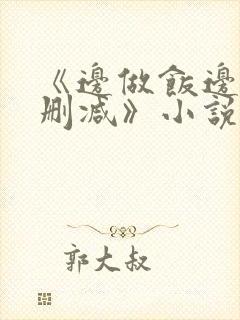 《邊做飯邊
刪减》小說
郭大叔